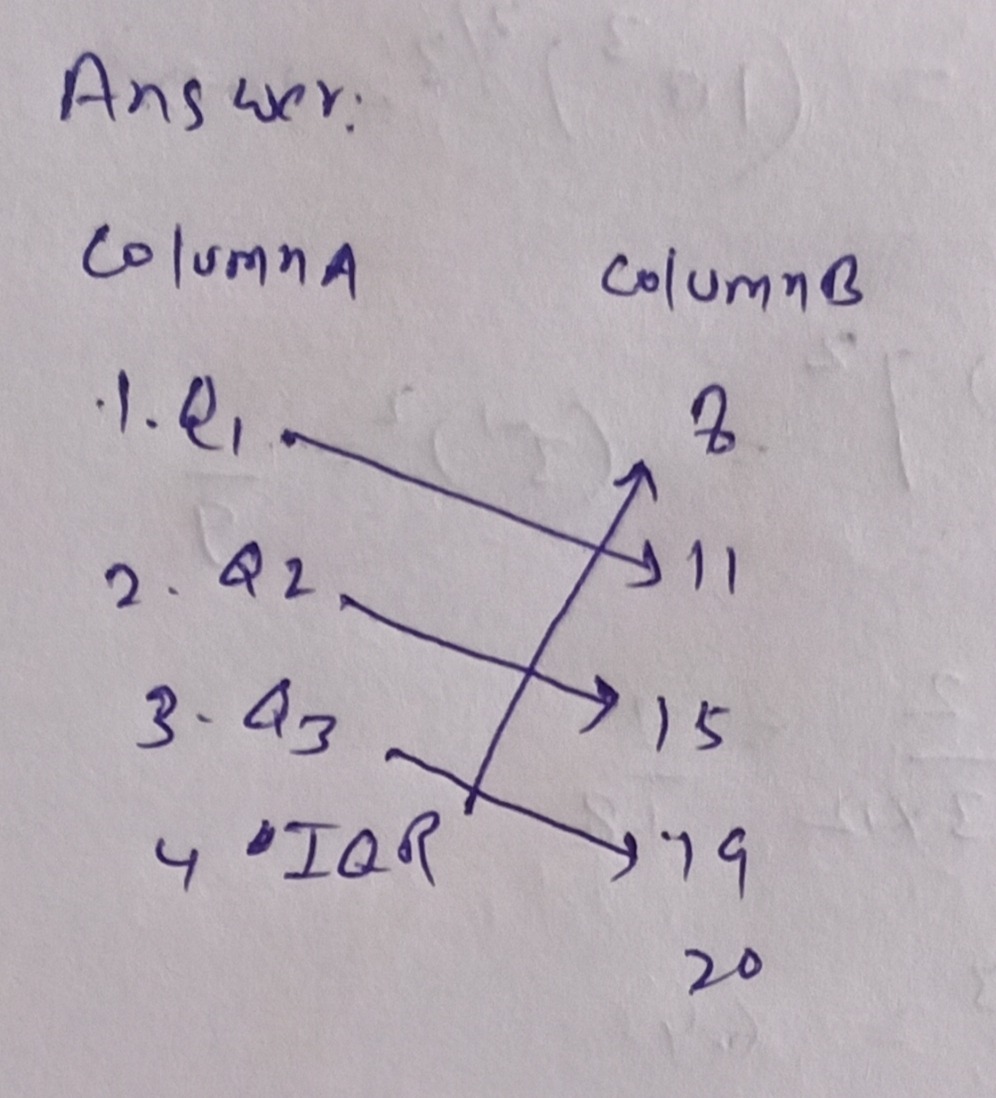 Answer:
Column A Column B
1. Q1 8
2. Q2 11
3. Q3 15
4 IQR 19
20